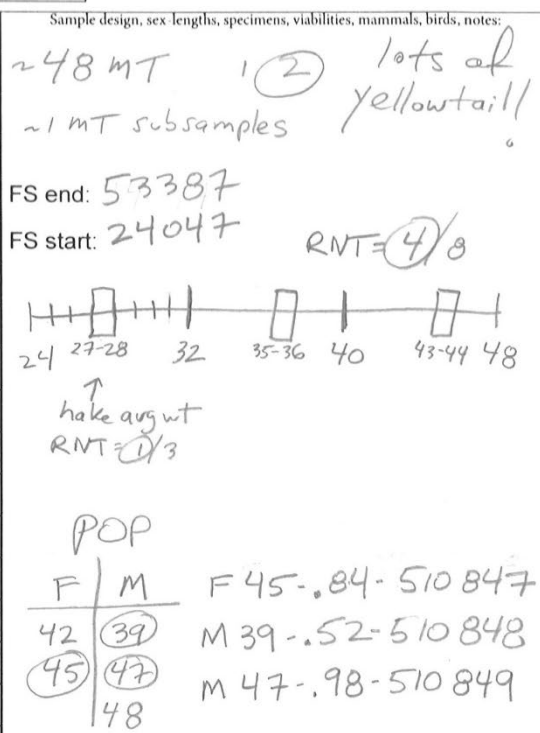 Sample design, sex-lengths, specimens, viabilities, mammals, birds, notes:
~48 MT 1 2 lots of
yellowtail!
~1 MT subsamples
FS end: 53387
FS start: 24047
RNT=4/8
24 27-28 32 35-36 40 43-44 48
↑
hake avg wt
RNT=1/3
POP
F M
42 39
45 47
48
F 45-.84-510847
M 39-.52-510848
M 47-.98-510849